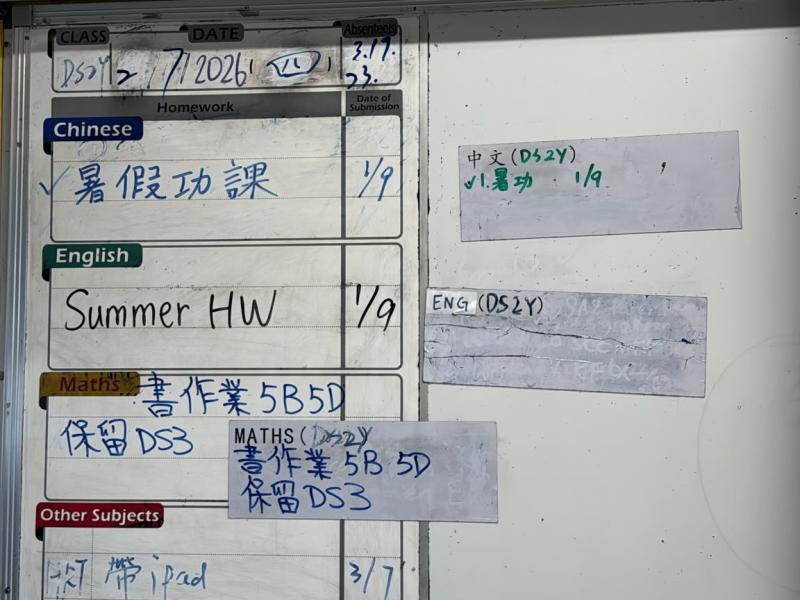 CLASS DATE Absentee(s)
DS2Y 2/7/2026 (四) 3.17.
23.
Homework Date of Submission
Chinese
✓暑假功課 1/9
English
Summer HW 1/9
Maths 書作業 5B 5D
保留 DS3
Other Subjects
帶ipad 3/7
中文(DS2Y)
✓1.暑功 1/9
ENG (DS2Y)
MATHS (DS2Y)
書作業 5B 5D
保留 DS3